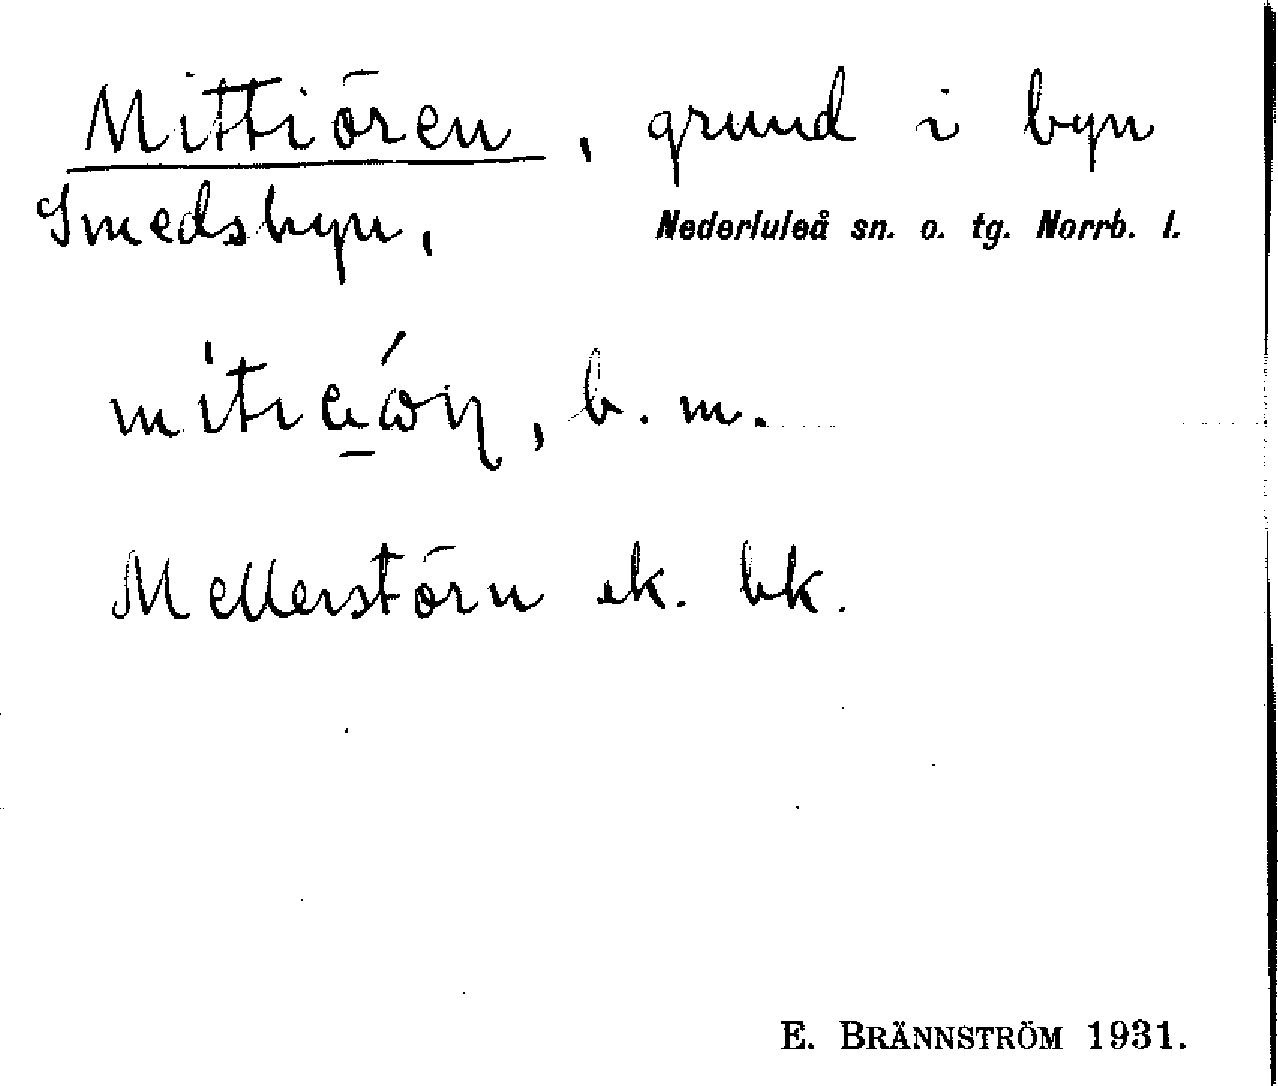 Mittiören, grund i byn
Smedsbyn, Nederluleå sn. o. tg. Norrb. l.
b. m.
Mellerstörn ek. bk.
E. BRÄNNSTRÖM 1931.